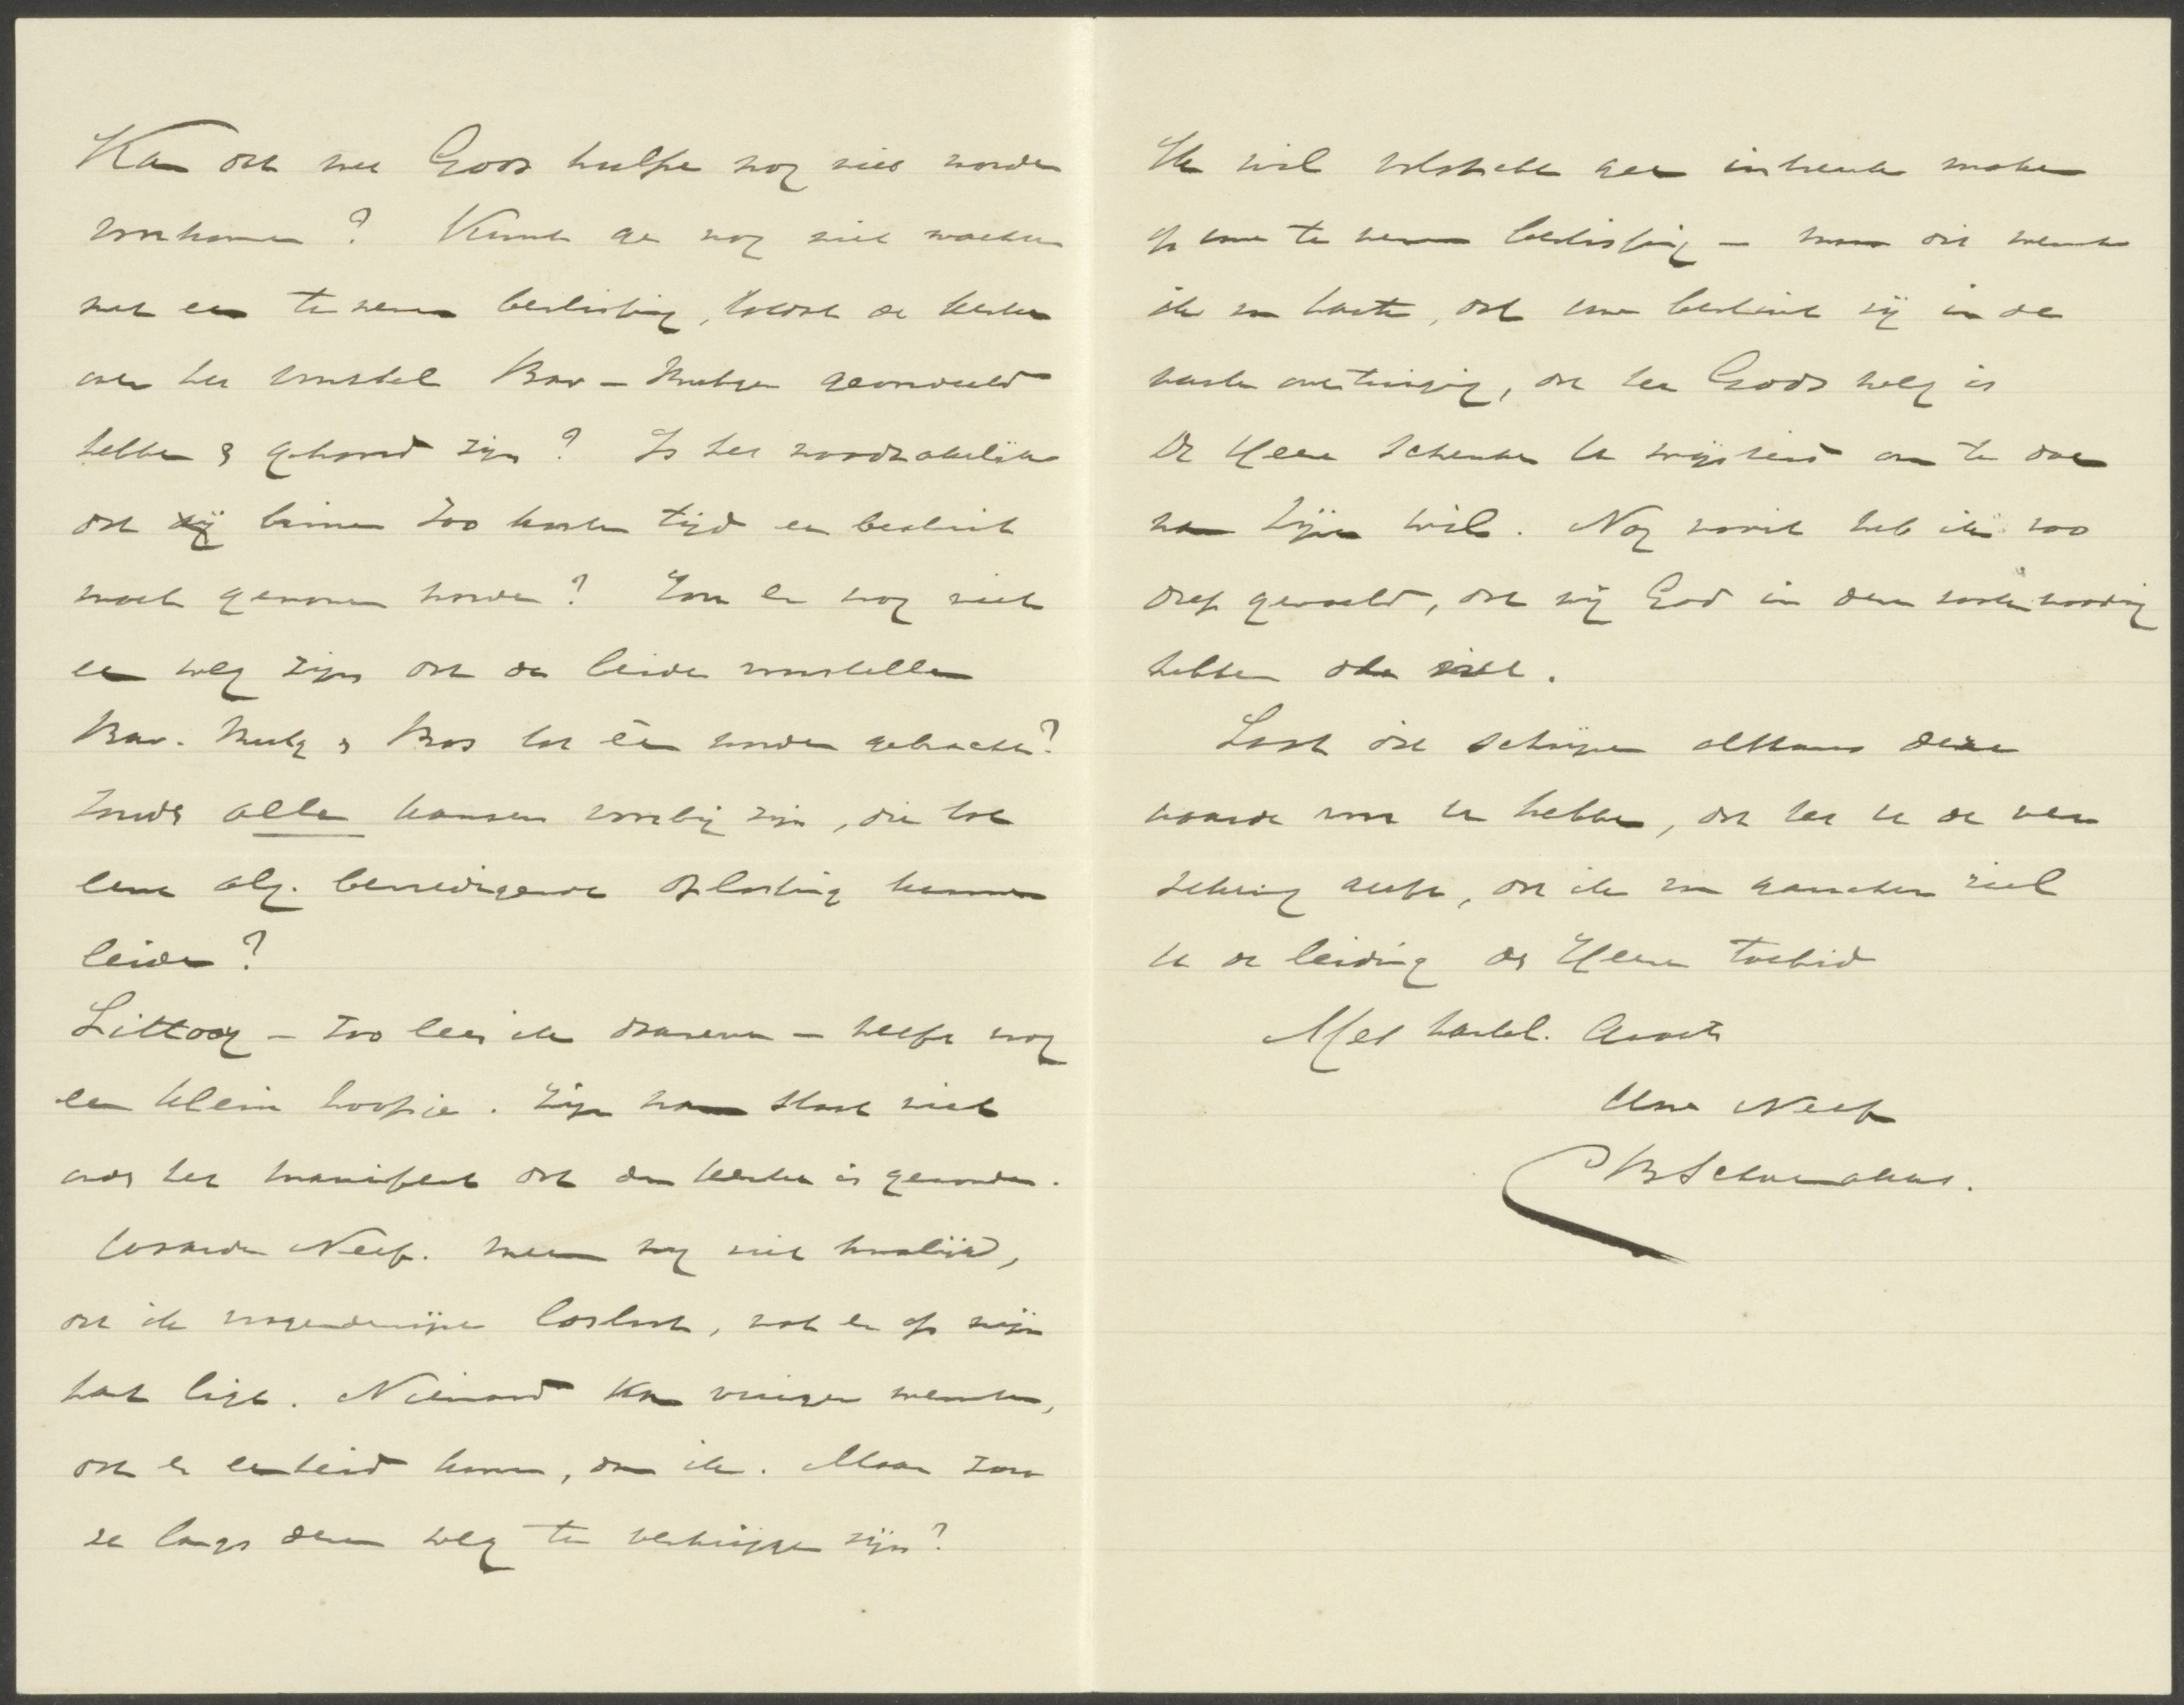 Kan dat met Gods hulpe nog niet worden
voorkomen? Kunt ge nog niet wachten
met een te nemen beslissing, totdat de kerken
over het voorstel Bav-Rutgers geoordeeld
hebben & gehoord zijn? Is het noodzakelijk
dat binnen zoo korten tijd een besluit
moet genomen worden? Zou er nog niet
een weg zijn dat de beide voorstellen
Bav. Rutg & Bos tot één worden gebracht?
Zouden alle kansen voorbij zijn, die tot
eene alg. bevredigende oplossing kunnen
leiden?
Littooy - zoo lees ik daareven - heeft nog
een klein hoopje. Zijn naam staat niet
onder het manifest dat den kerken is gezonden.
Waarde Neef. neem mij niet kwalijk,
dat ik vragenderwijze loslaat, wat er op mijn
hart ligt. Niemand kan vuriger wenschen,
dat er eenheid kome, dan ik. Maar zou
ze langs dezen weg te verkrijgen zijn?
Ik wil volstrekt geen inbreuk maken
op uwe te nemen beslissing - maar dit wensch
ik van harte, dat uw besluit zij in de
vaste overtuiging, dat het Gods weg is
De Heere schenke U wijsheid om te doen
naar Zijn wil. Nog nooit heb ik zoo
diep gevoeld, dat wij God in dezen noodig
hebben
Laat dit schrijven althans deze
waarde voor U hebben, dat het U de ver
zekering geeft, dat ik van ganscher ziel
U de leiding des Heeren toebid
Met hartel. Groete
Uw Neef